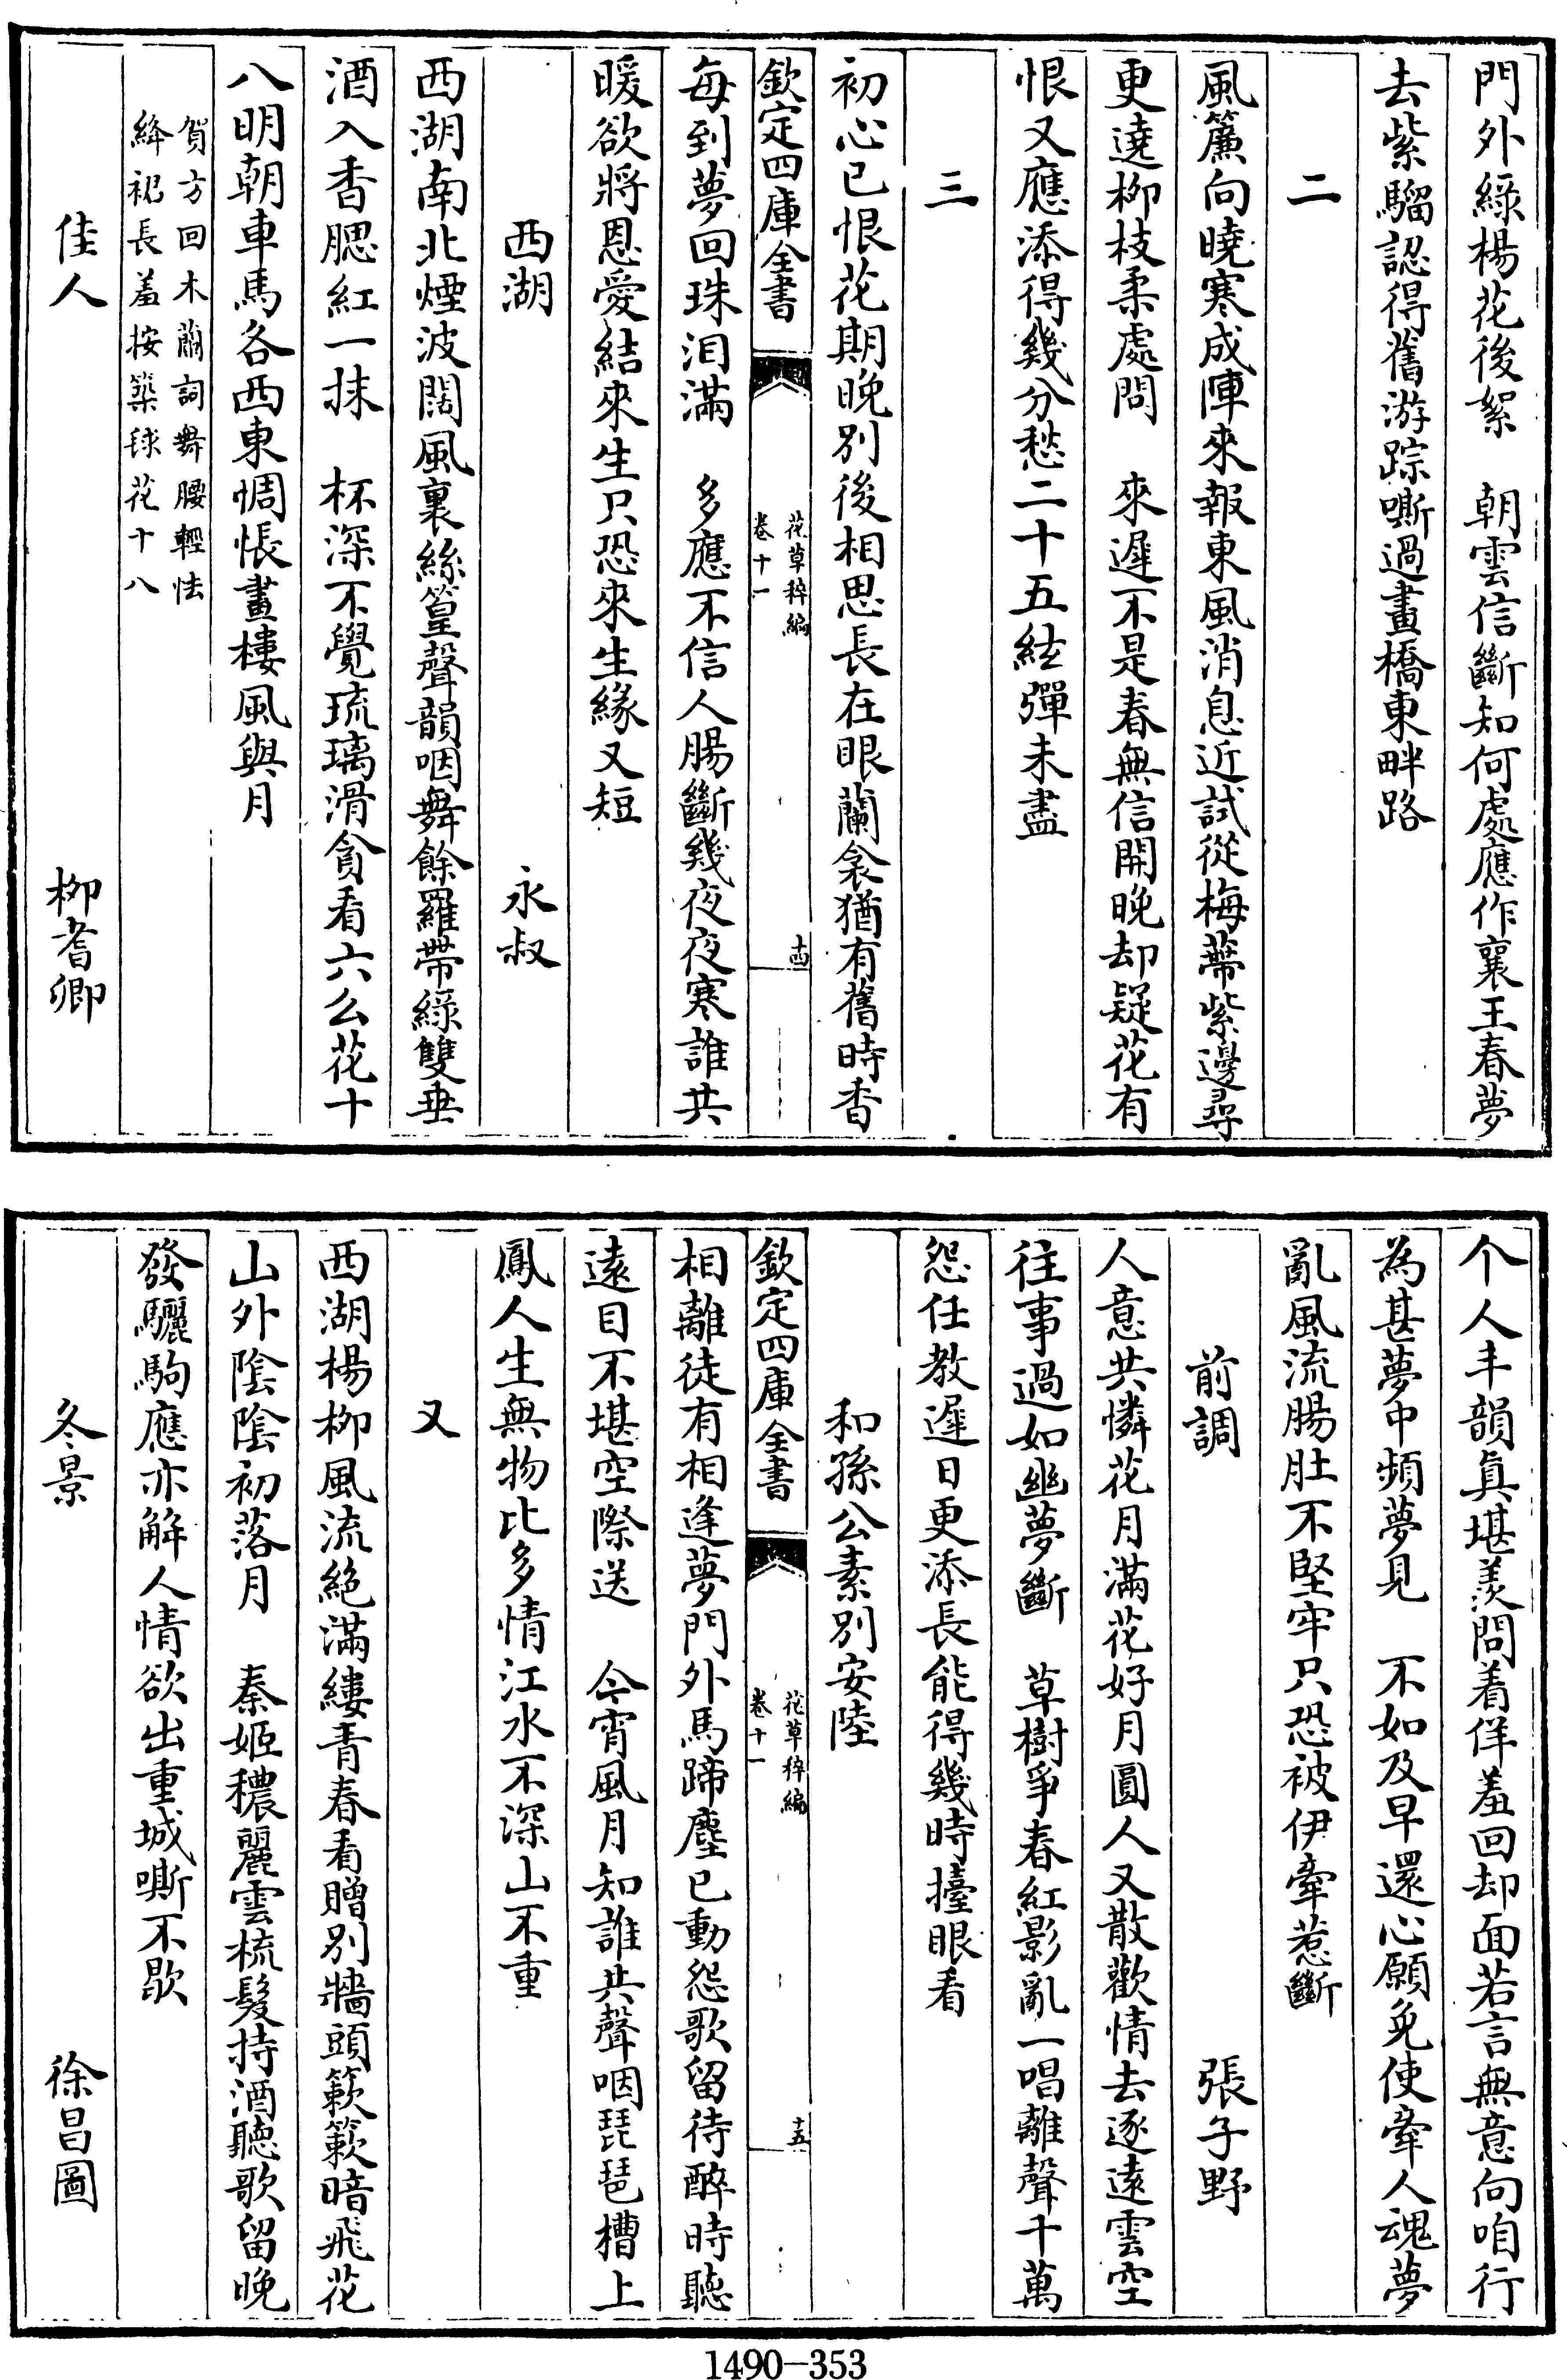 門外綠楊花後絮　朝雲信斷知何處應作襄王春夢
去紫騮認得舊游踪嘶過畫橋東畔路
二
風簾向曉寒成陣來報東風消息近試從梅蔕紫邊尋
更遶柳枝柔處問　來遲不是春無信開晚却疑花有
恨又應添得幾分愁二十五絃彈未盡
三
初心已恨花期晚別後相思長在眼蘭衾猶有舊時香
欽定四庫全書
花草稡編
卷十一
十四
每到夢回珠淚滿　多應不信人腸斷幾夜夜寒誰共
暖欲將恩愛結來生只恐來生緣又短
西湖　永叔
西湖南北煙波闊風裏絲篁聲韻咽舞餘羅帶綠雙垂
酒入香腮紅一抹　杯深不覺琉璃滑貪看六么花十
八明朝車馬各西東惆悵畫樓風與月
賀方回木蘭詞舞腰輕怯
絳裙長羞按築毬花十八
佳人　柳耆卿
个人丰韻真堪羨問着佯羞回却面若言無意向咱行
為甚夢中頻夢見　不如及早還心願免使牽人魂夢
亂風流腸肚不堅牢只恐被伊牽惹斷
前調　張子野
人意共憐花月滿花好月圓人又散歡情去逐遠雲空
往事過如幽夢斷　草樹爭春紅影亂一唱離聲千萬
怨任教遲日更添長能得幾時擡眼看
和孫公素別安陸
欽定四庫全書
花草稡編
卷十一
十五
相離徒有相逢夢門外馬蹄塵已動怨歌留待醉時聽
遠目不堪空際送　今宵風月知誰共聲咽琵琶槽上
鳳人生無物比多情江水不深山不重
又
西湖楊柳風流絕滿縷青春看贈別牆頭簌簌暗飛花
山外陰陰初落月　秦姬穠麗雲梳髮持酒聽歌留晚
發驪駒應亦解人情欲出重城嘶不歇
冬景　徐昌圖
1490-353